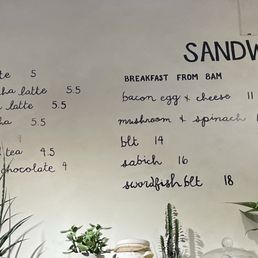 5
latte 5.5
latte 5.5
5.5
tea 4.5
chocolate 4
BREAKFAST FROM 8AM
bacon egg & cheese 11
mushroom & spinach
blt 14
sabich 16
swordfish blt 18